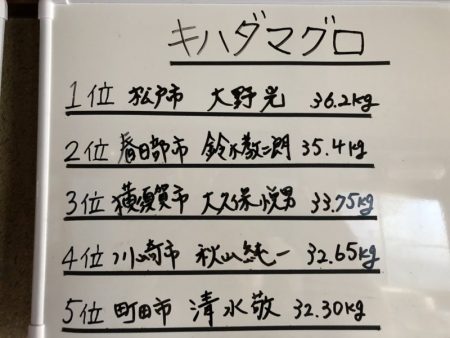 キハダマグロ
1位 松戸市 大野光 36.2kg
2位 春日部市 鈴木敬二朗 35.4kg
3位 横須賀市 大久保悦男 33.75kg
4位 川崎市 秋山純一 32.65kg
5位 町田市 清水敬 32.30kg